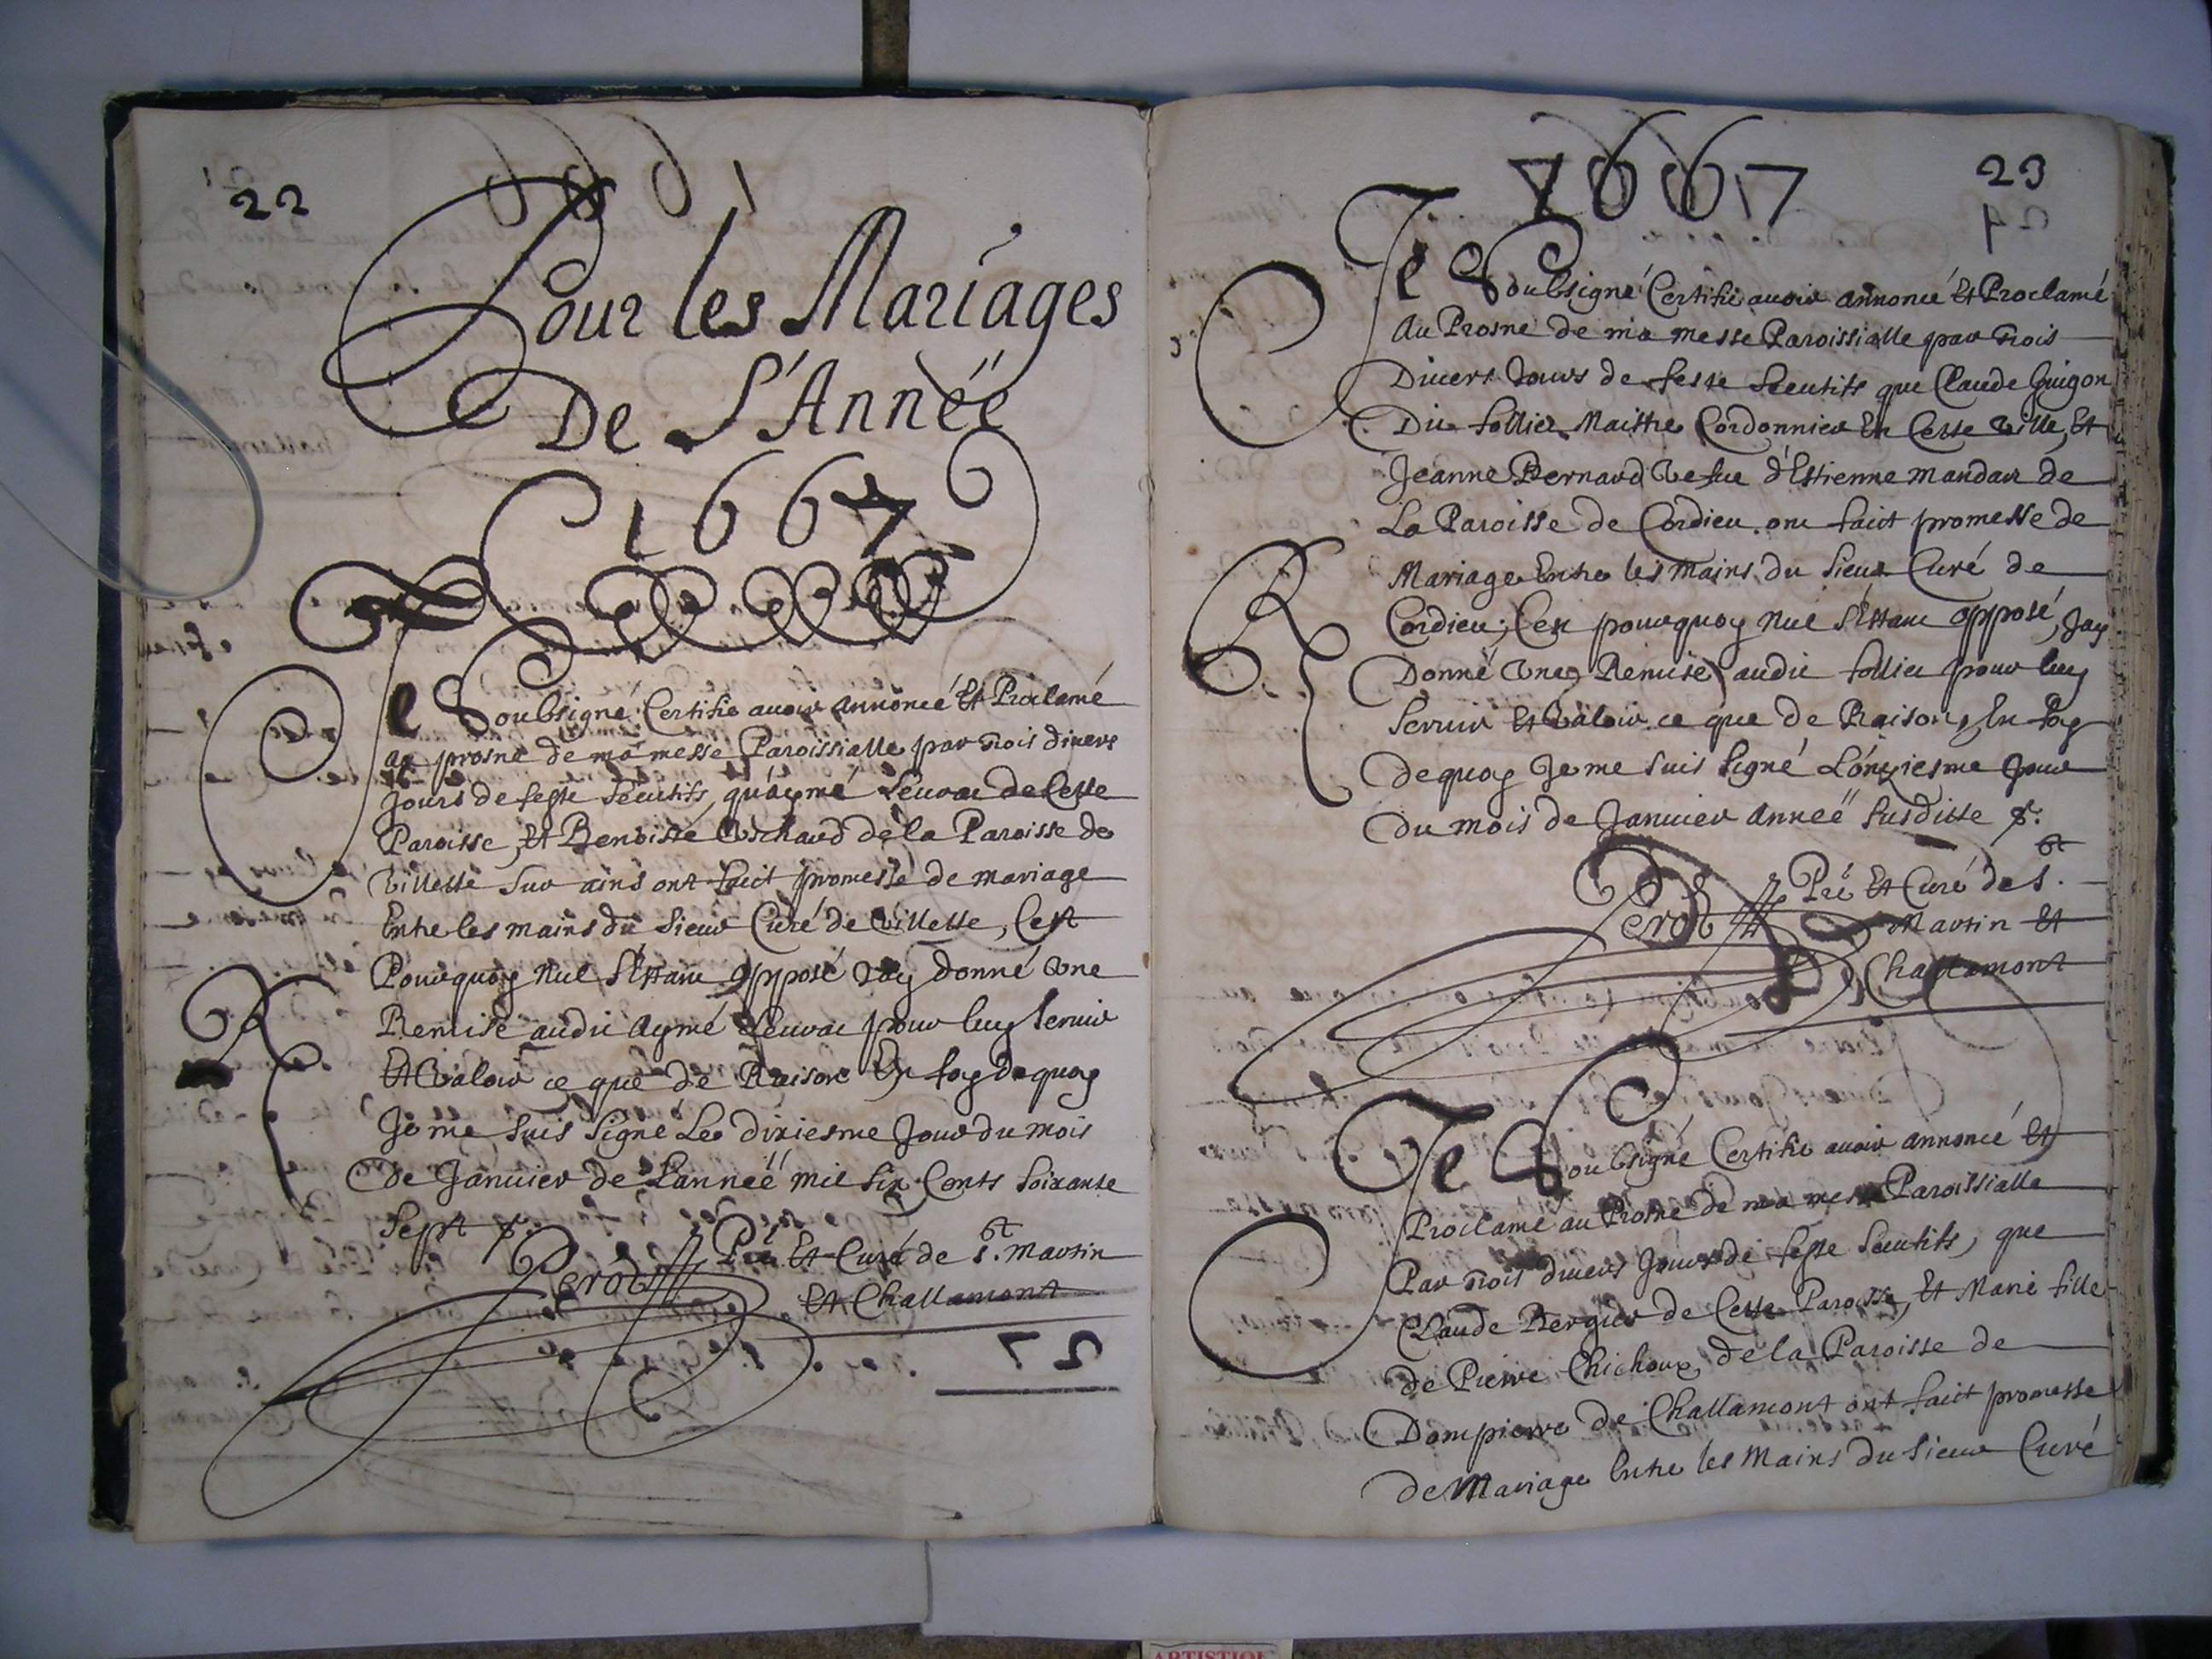 22
Pour les Mariages
De L'Anneé
1667
Je Soubsigné Certifie auoir annoncé Et Proclamé
au prosne de ma messe Paroissialle par trois diuers
Jours de feste Secutifs, qu'aymé Leuvat de Cette
Paroisse, Et Benoiste Vichaud de la Paroisse de
Villette sur ains ont faict promesse de mariage
Entre les mains du sieur Curé de Villette, C'est
Pourquoy Nul s'Estant opposé Jay donné Vne
Remise audit Aymé Leuvat pour luy Seruir
Et Valoir ce que de Raison En foy de quoy
Je me suis signé Le dixiesme Jour du mois
de Januier de L'anneé mil six Cents soixante
Sept
Perod Pre Et Curé de St. Martin
Et Challamont
27
1667
23
Je Soubsigné Certifie auoir annoncé Et Proclamé
Au Prosne de ma messe Paroissialle par trois
Diuers Jours de feste Secutifs que Claude Guigon
Dit follier Maistre Cordonnier En Cette Ville, Et
Jeanne Bernard Vefue d'Estienne Mandar de
La Paroisse de Cordieu ont faict promesse de
Mariage Entre les Mains du sieur Curé de
Cordieu; C'est pourquoy Nul s'Estant opposé, Jay
Donné Vne Remise audit follier pour luy
Seruir Et Valoir ce que de Raison, En foy
de quoy Je me suis signé L'onziesme Jour
du mois de Januier Anneé susditte
Perod Pre Et Curé de St.
Martin Et
Challamont
Je Soubsigné Certifie auoir annoncé Et
Proclamé au Prosne de ma messe Paroissialle
Par trois diuers Jours de feste Secutifs, que
Claude Bergier de Cette Paroisse, Et Marie fille
de Pierre Chichoux de la Paroisse de
Dompierre de Challamont ont faict promesse
de Mariage Entre les Mains du sieur Curé